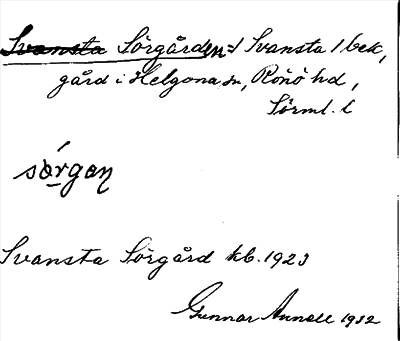 Svansta Sörgården i Svansta 1 bek,
gård i Helgona sn, Rönö hd,
Sörml. l
sórgan
Svansta Sörgård kb. 1923
Gunnar Annell 1932